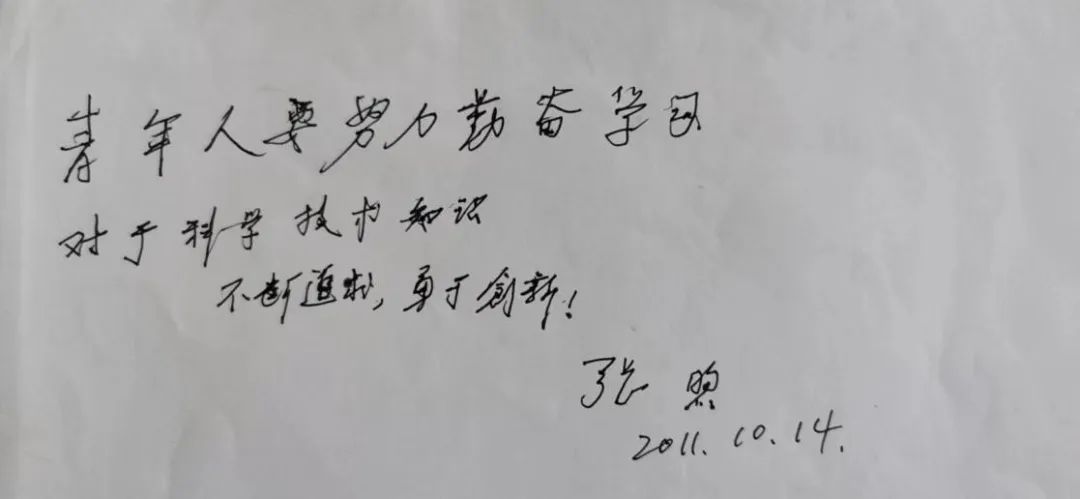 青年人要努力勤奋学习
对于科学技术知识
不断追求,勇于创新!
张煦
2011.10.14.